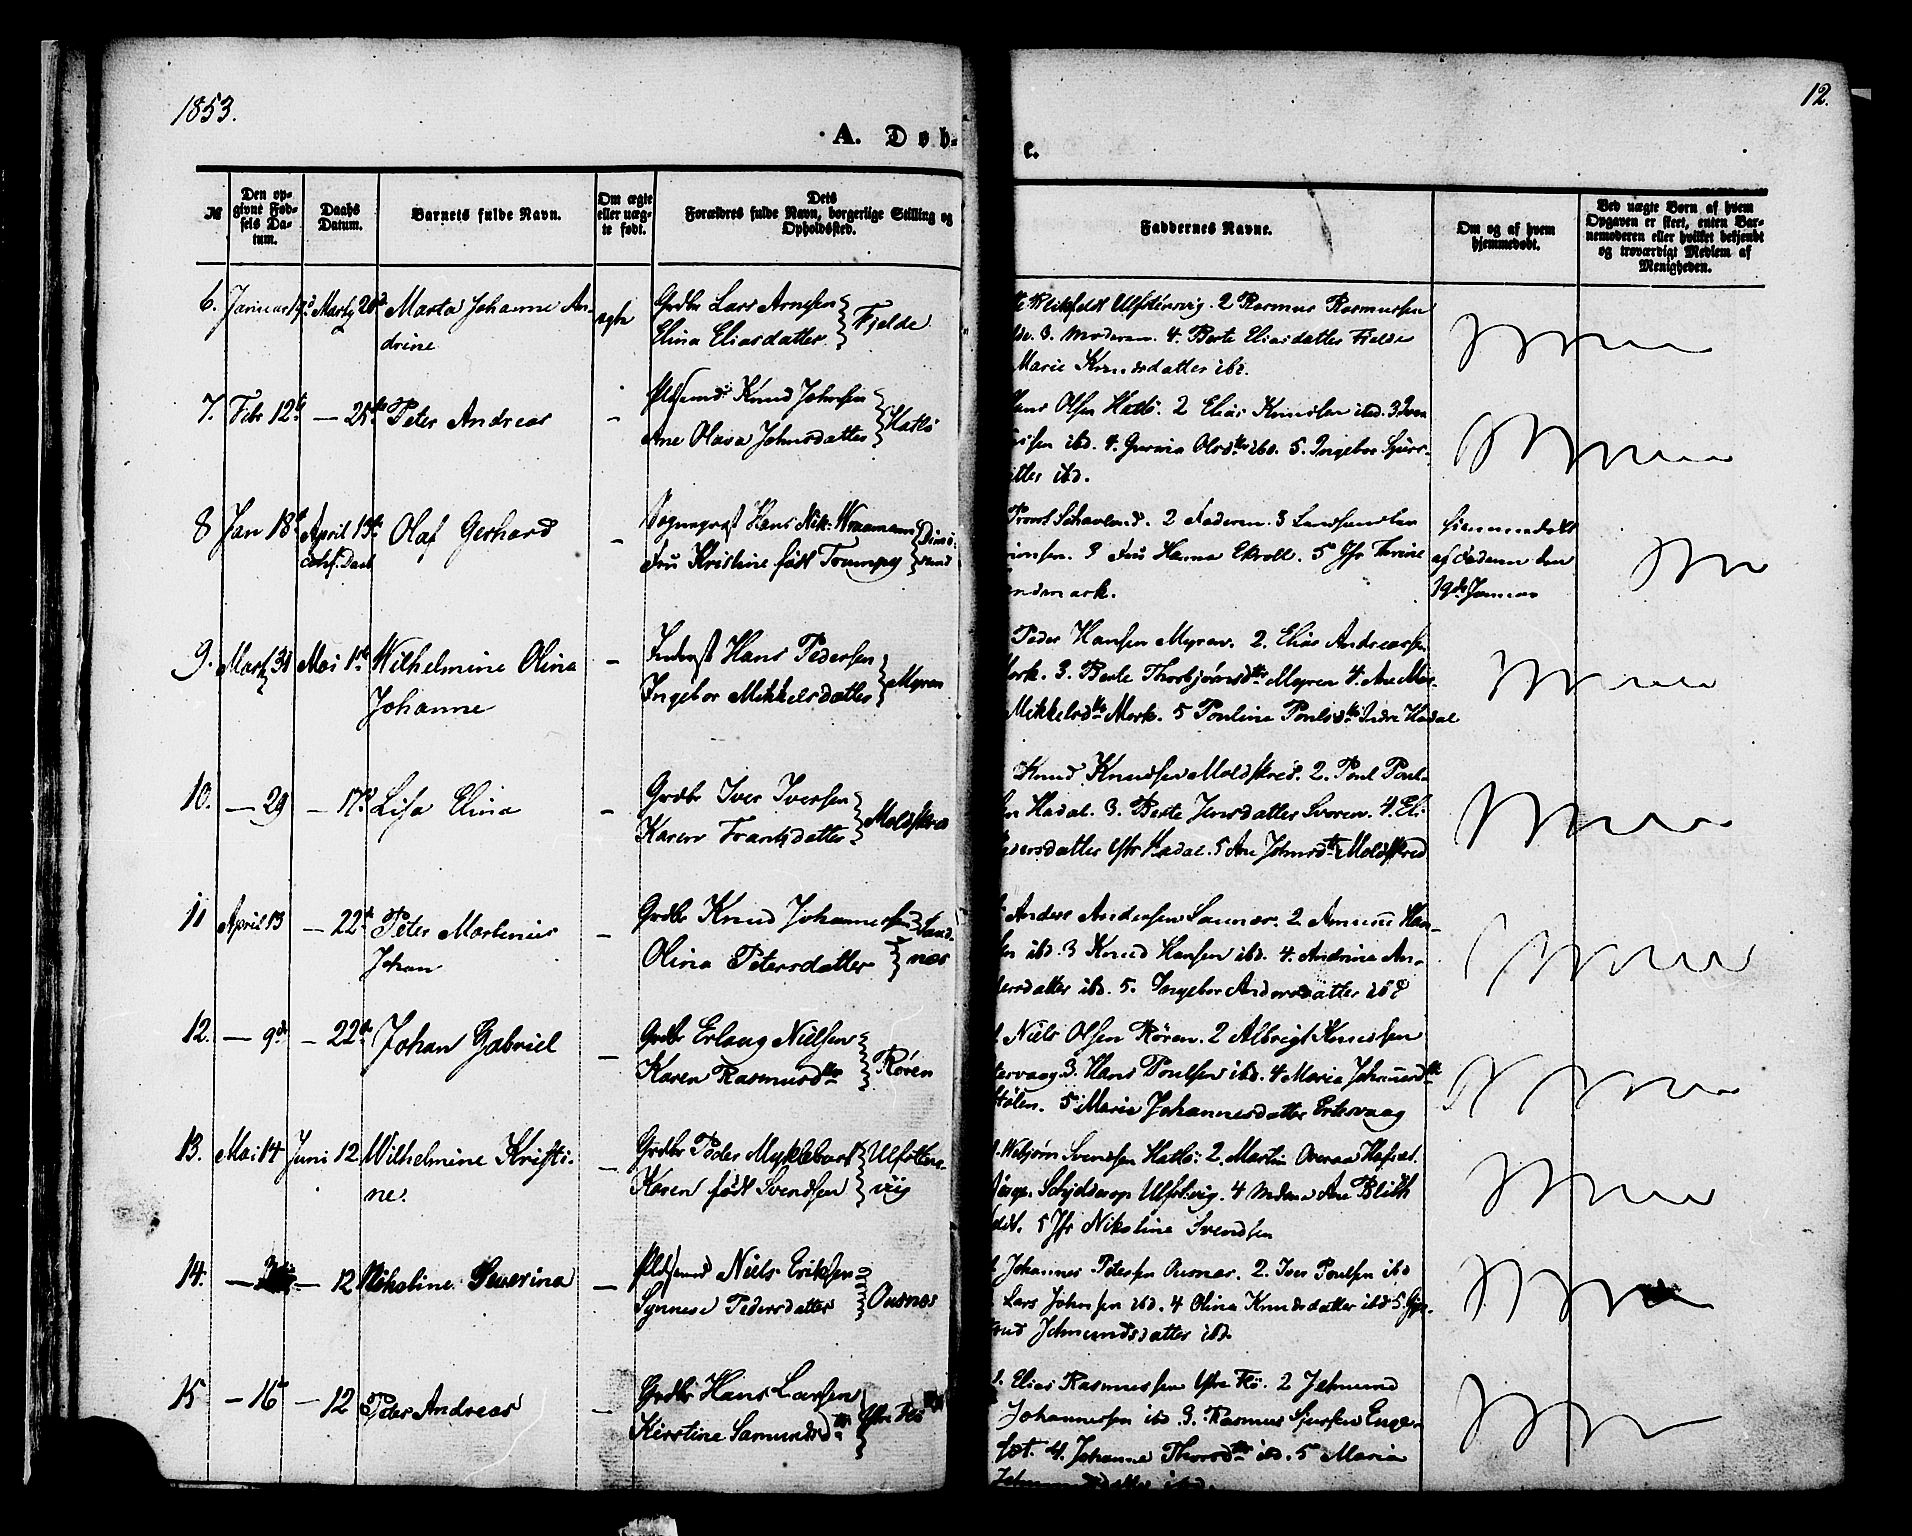 1853.
12.
A. Døb-
e.
№
Den op-
givne Fød-
sels Da-
tum.
Daabs
Datum.
Barnets fulde Navn.
Om ægte
eller uæg-
te født.
Dets
Forældres fulde Navn, borgerlige Stilling og
Opholdssted.
Faddernes Navne.
Om og af hvem
hjemmedøbt.
Ved uægte Børn af hvem
Opgaven er skeet, enten Bar-
nemoderen eller hvilket bekjendt
og troværdigt Medlem af
Menigheden.
6. Januar 19d Marts 20d Marta Johanne An-
drine
ægte
Grdbr Lars Arnesen
Elina Eliasdatter
Fjelde
Blikfeldt Ulfsteenvig. 2 Rasmus Rasmussen
3. Moderen. 4. Berte Eliasdatter Fjelde
Marie Knudsdatter ibd.
7. Febr 12te — 25de Peter Andreas
—
Pldsmd Knud Johnsen
Ane Olava Johnsdatter
Hatlø
Hans Olsen Hatlø. 2 Elias Knudsen ibd. 3
ibd. 4. Olsdtr ibd. 5. Ingebor Sjurs-
datter ibd.
8 Jan 18de April 13de Olaf Gerhard
conf. Daab
—
Sognepræst Hans Nik:
Fru Kristine født Trumpy
Dims-
sund
Provst 2 Faderen. 3
3 Fru Hanna Ekroll. 5 Jfr
hiemmedøbt
af Faderen den
19de Januar
9. Marts 31 Mai 1ste Wilhelmine Olina
Johanne
—
Inderst Hans Pedersen
Ingebor Mikkelsdatter
Myren
Peder Hansen Myren. 2. Elias Andreassen
Mork. 3. Berte Thorbjørnsdtr Myren 4. Ane Mar-
Mikkelsdtr Mork. 5 Pouline Poulsdtr Indre Hadal
10. — 29 — 17de Lisa Elina
—
Grdbr Iver Iversen
Karen Frantsdatter
Moldskred
Knud Knudsen Moldskred. 2. Poul Poul-
sen Hadal. 3. Berte Jensdatter Svoren. 4. El-
Pedersdatter Ytr Hadal. 5 Ane Johnsdtr Moldskred
11 April 13 — 22de Peter Martinius
Johan
—
Grdbr Knud Johannessen
Olina Petersdatter
Saund-
næs
Anders Andersen Saunæs. 2 Amund Han-
sen ibd. 3 Knud Hansen ibd. 4. Andrina An-
dersdatter ibd. 5. Ingebor Andersdatter ibd
12. — 9de — 22de Johan Gabriel
—
Grdbr Erland Nielsen
Karen Rasmusdtr
Røren
Niels Olsen Røren. 2 Albrigt Knudsen
Ertesvaag 3. Hans Poulsen ibd. 4 Maria Johannesdtr
Hølen. 5 Marie Johannesdatter Ertesvaag
13. Mai 14 Juni 12 Wilhelmine Kristi-
ne.
—
Grdbr Peder Myklebost
Karen født Svendsen
Ulfsteen-
vig
Svendsen Hatlø. 2. Martin Overaa
Ulfstvig. 4 Mdme Ane Blik
feldt. 5 Jfr Nikoline Svendsen
14. — — 12 Nikoline Severina
—
Pldsmd Niels Eriksen
Synneve Pedersdatter
Ousnæs
Johannes Petersen Ousnæs. 2. Iver Poulsen ibd
Lars Johnsen ibd. 4 Olina Knudsdatter ibd 5. Gjer-
trud Jetmundsdatter ibd.
15 — 16de — 12 Peter Andreas
—
Grdbr Hans Larsen
Kirstine Samundsdtr
Yttre Flø
Elias Rasmussen Yttre Flø. 2 Jetmund
Johannessen ibd 3. Rasmus Sjursen Enge-
sæt. 4. Johanne Thorsdtr ibd. 5 Maria
Jetmundsdatter ibd.